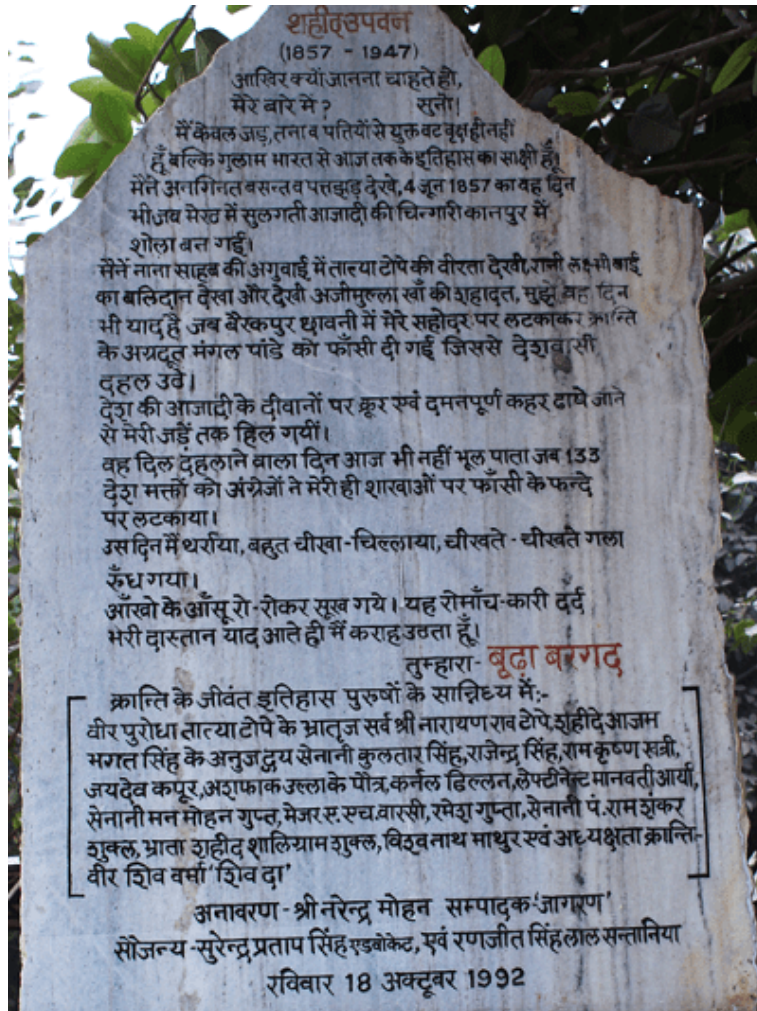 शहीद उपवन
(1857 - 1947)
आखिर क्यों जानना चाहते हो,
मेरे बारे में ? सुनो।
मैं केवल जड़, तना व पत्तियों से युक्त वट वृक्ष ही नहीं
हूँ बल्कि गुलाम भारत से आज तक के इतिहास का साक्षी हूँ।
मैंने अनगिनत बसन्त व पतझड़ देखे, 4 जून 1857 का वह दिन
भी जब मेरठ में सुलगती आजादी की चिन्गारी कानपुर में
शोला बन गई।
मैनें नाना साहब की अगुवाई में तात्या टोपे की वीरता देखी, रानी लक्ष्मी बाई
का बलिदान देखा और देखी अजीमुल्ला खाँ की शहादत, मुझे वह दिन
भी याद है जब बैरकपुर छावनी में मेरे सहोदर पर लटकाकर क्रान्ति
के अग्रदूत मंगल पांडे को फाँसी दी गई जिससे देशवासी
दहल उठे।
देश की आजादी के दीवानों पर क्रूर एवं दमनपूर्ण कहर ढाये जाने
से मेरी जड़ें तक हिल गयीं।
वह दिल दहलाने वाला दिन आज भी नहीं भूल पाता जब 133
देश भक्तों को अंग्रेजों ने मेरी ही शाखाओं पर फाँसी के फन्दे
पर लटकाया।
उस दिन मैं थर्राया, बहुत चीखा-चिल्लाया, चीखते-चीखते गला
रुँध गया।
आँखो के आँसू रो-रोकर सूख गये। यह रोमाँच-कारी दर्द
भरी दास्तान याद आते ही मैं कराह उठता हूँ।
तुम्हारा- बूढ़ा बरगद
क्रान्ति के जीवंत इतिहास पुरुषों के सान्निध्य में:-
वीर पुरोधा तात्या टोपे के भ्रातृज सर्व श्री नारायण राव टोपे, शहीदे आजम
भगत सिंह के अनुज द्वय सेनानी कुलतार सिंह, राजेन्द्र सिंह, राम कृष्ण खत्री,
जयदेव कपूर, अशफाक उल्ला के पौत्र, कर्नल ढिल्लन, लेफ्टीनेन्ट मानवती आर्या,
सेनानी मन मोहन गुप्त, मेजर ए. एच. वारसी, रमेश गुप्ता, सेनानी पं. राम शंकर
शुक्ल, भ्राता शहीद शालिग्राम शुक्ल, विश्व नाथ माथुर एवं अध्यक्षता क्रान्ति-
वीर शिव वर्मा 'शिव दा'
अनावरण - श्री नरेन्द्र मोहन सम्पादक 'जागरण'
सौजन्य - सुरेन्द्र प्रताप सिंह एडवोकेट, एवं रणजीत सिंह लाल सन्तानिया
रविवार 18 अक्टूबर 1992